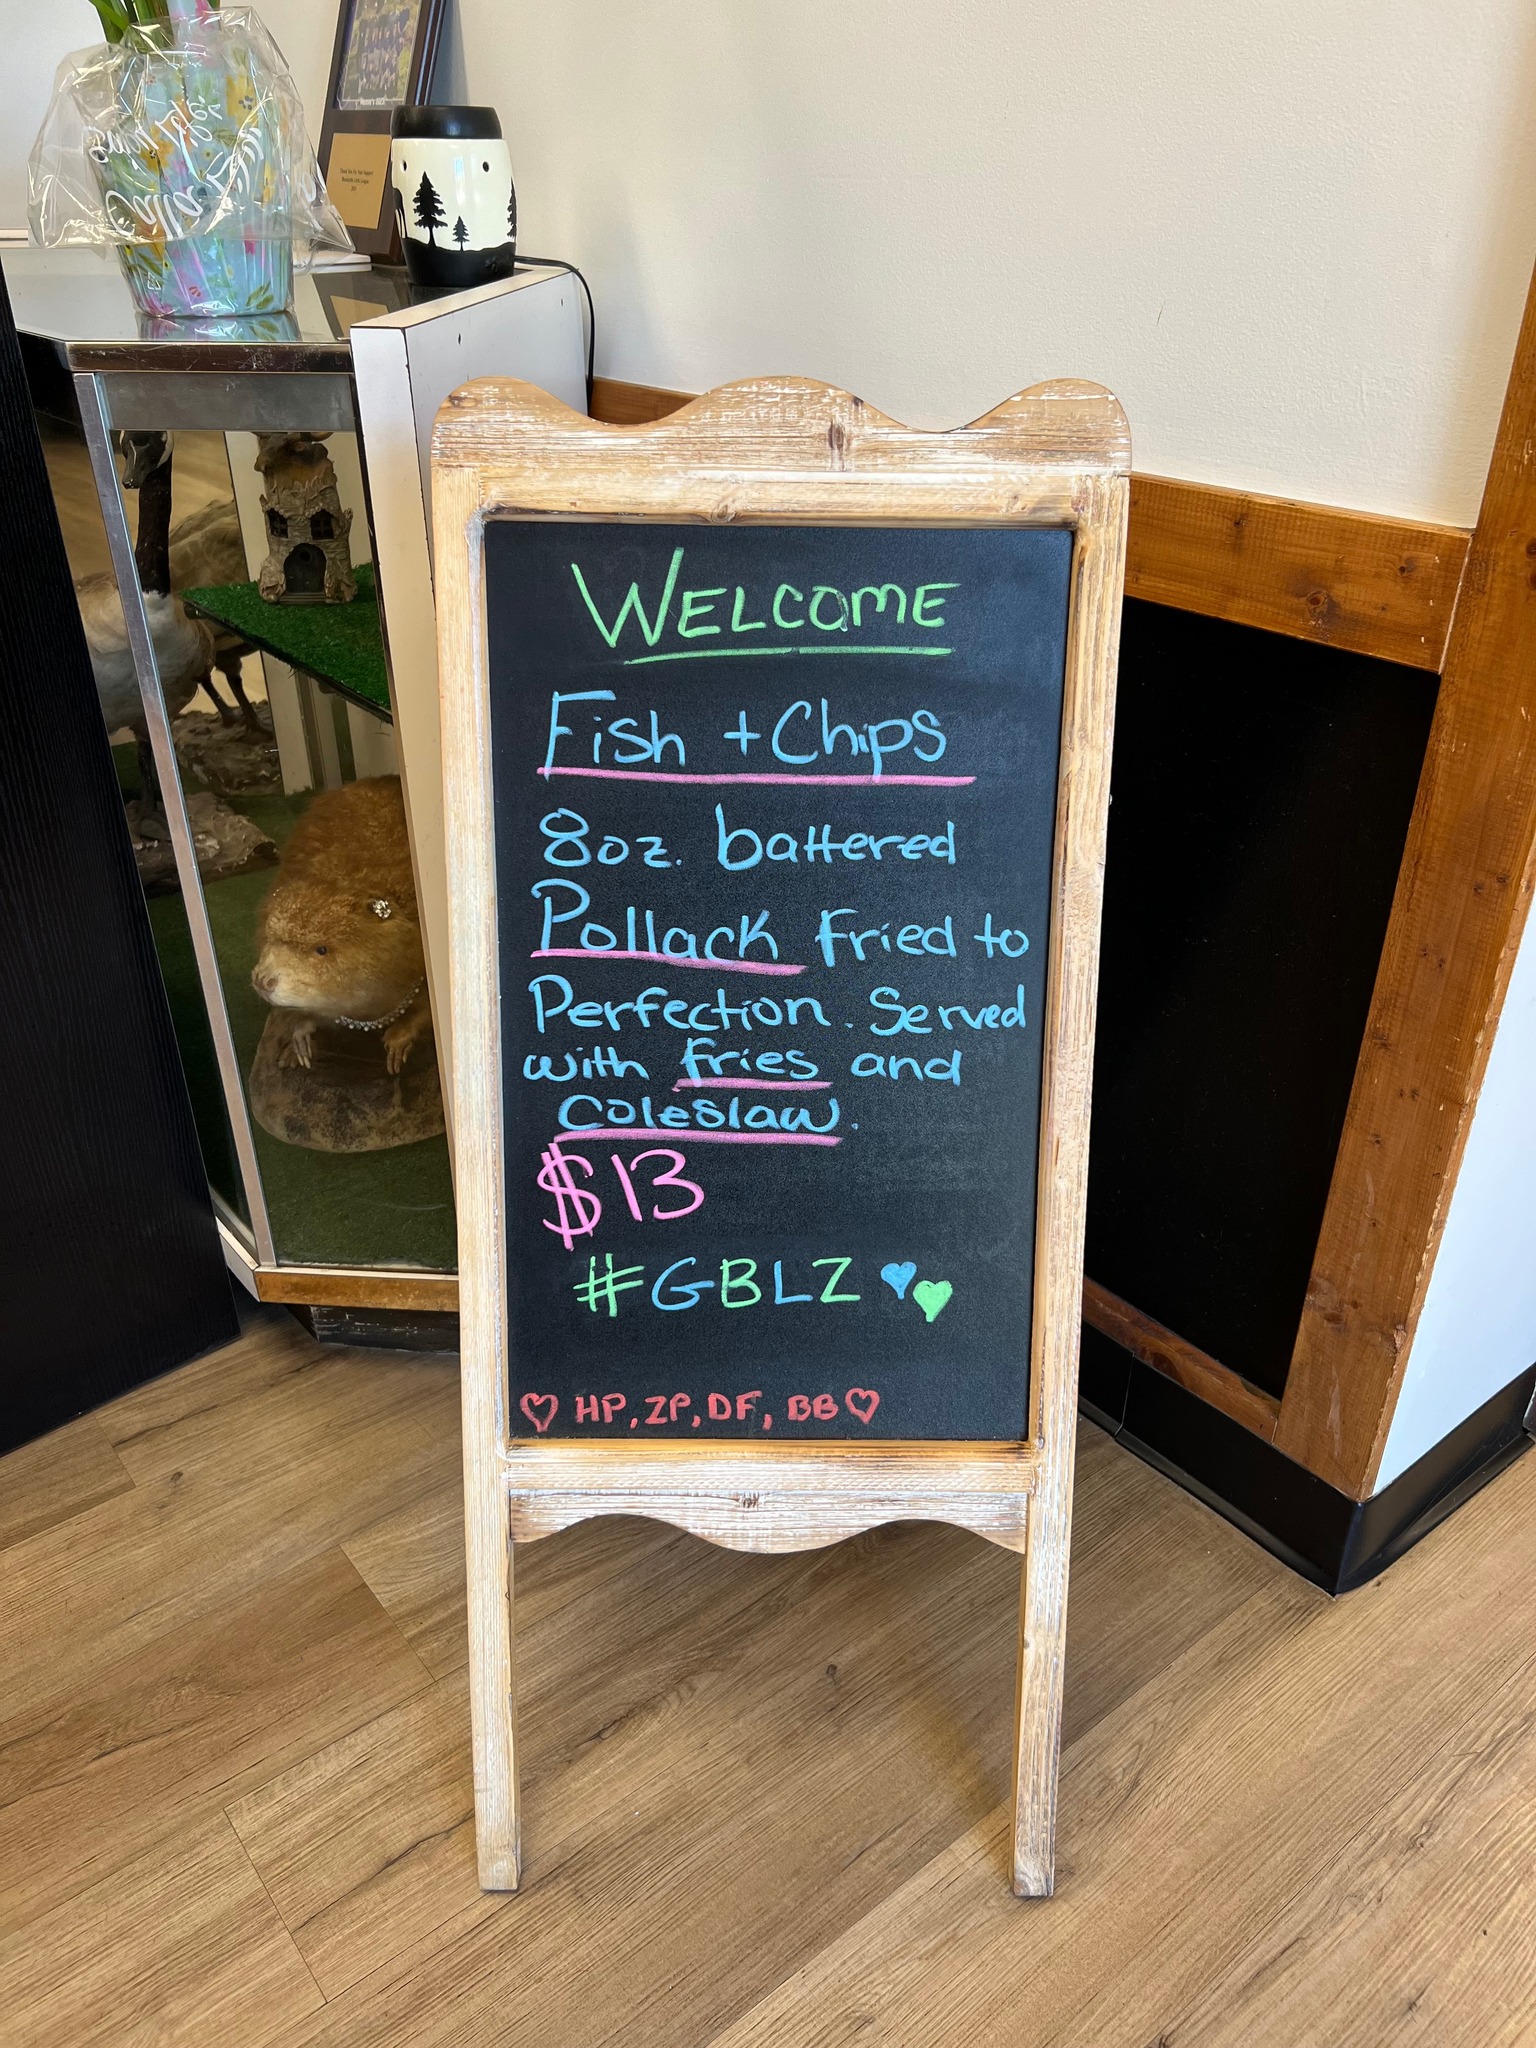 Calla Lilies
WELCOME
Fish + Chips
8oz. battered
Pollack fried to
Perfection. Served
with fries and
coleslaw.
$13
#GBLZ
HP, ZP, DF, BB